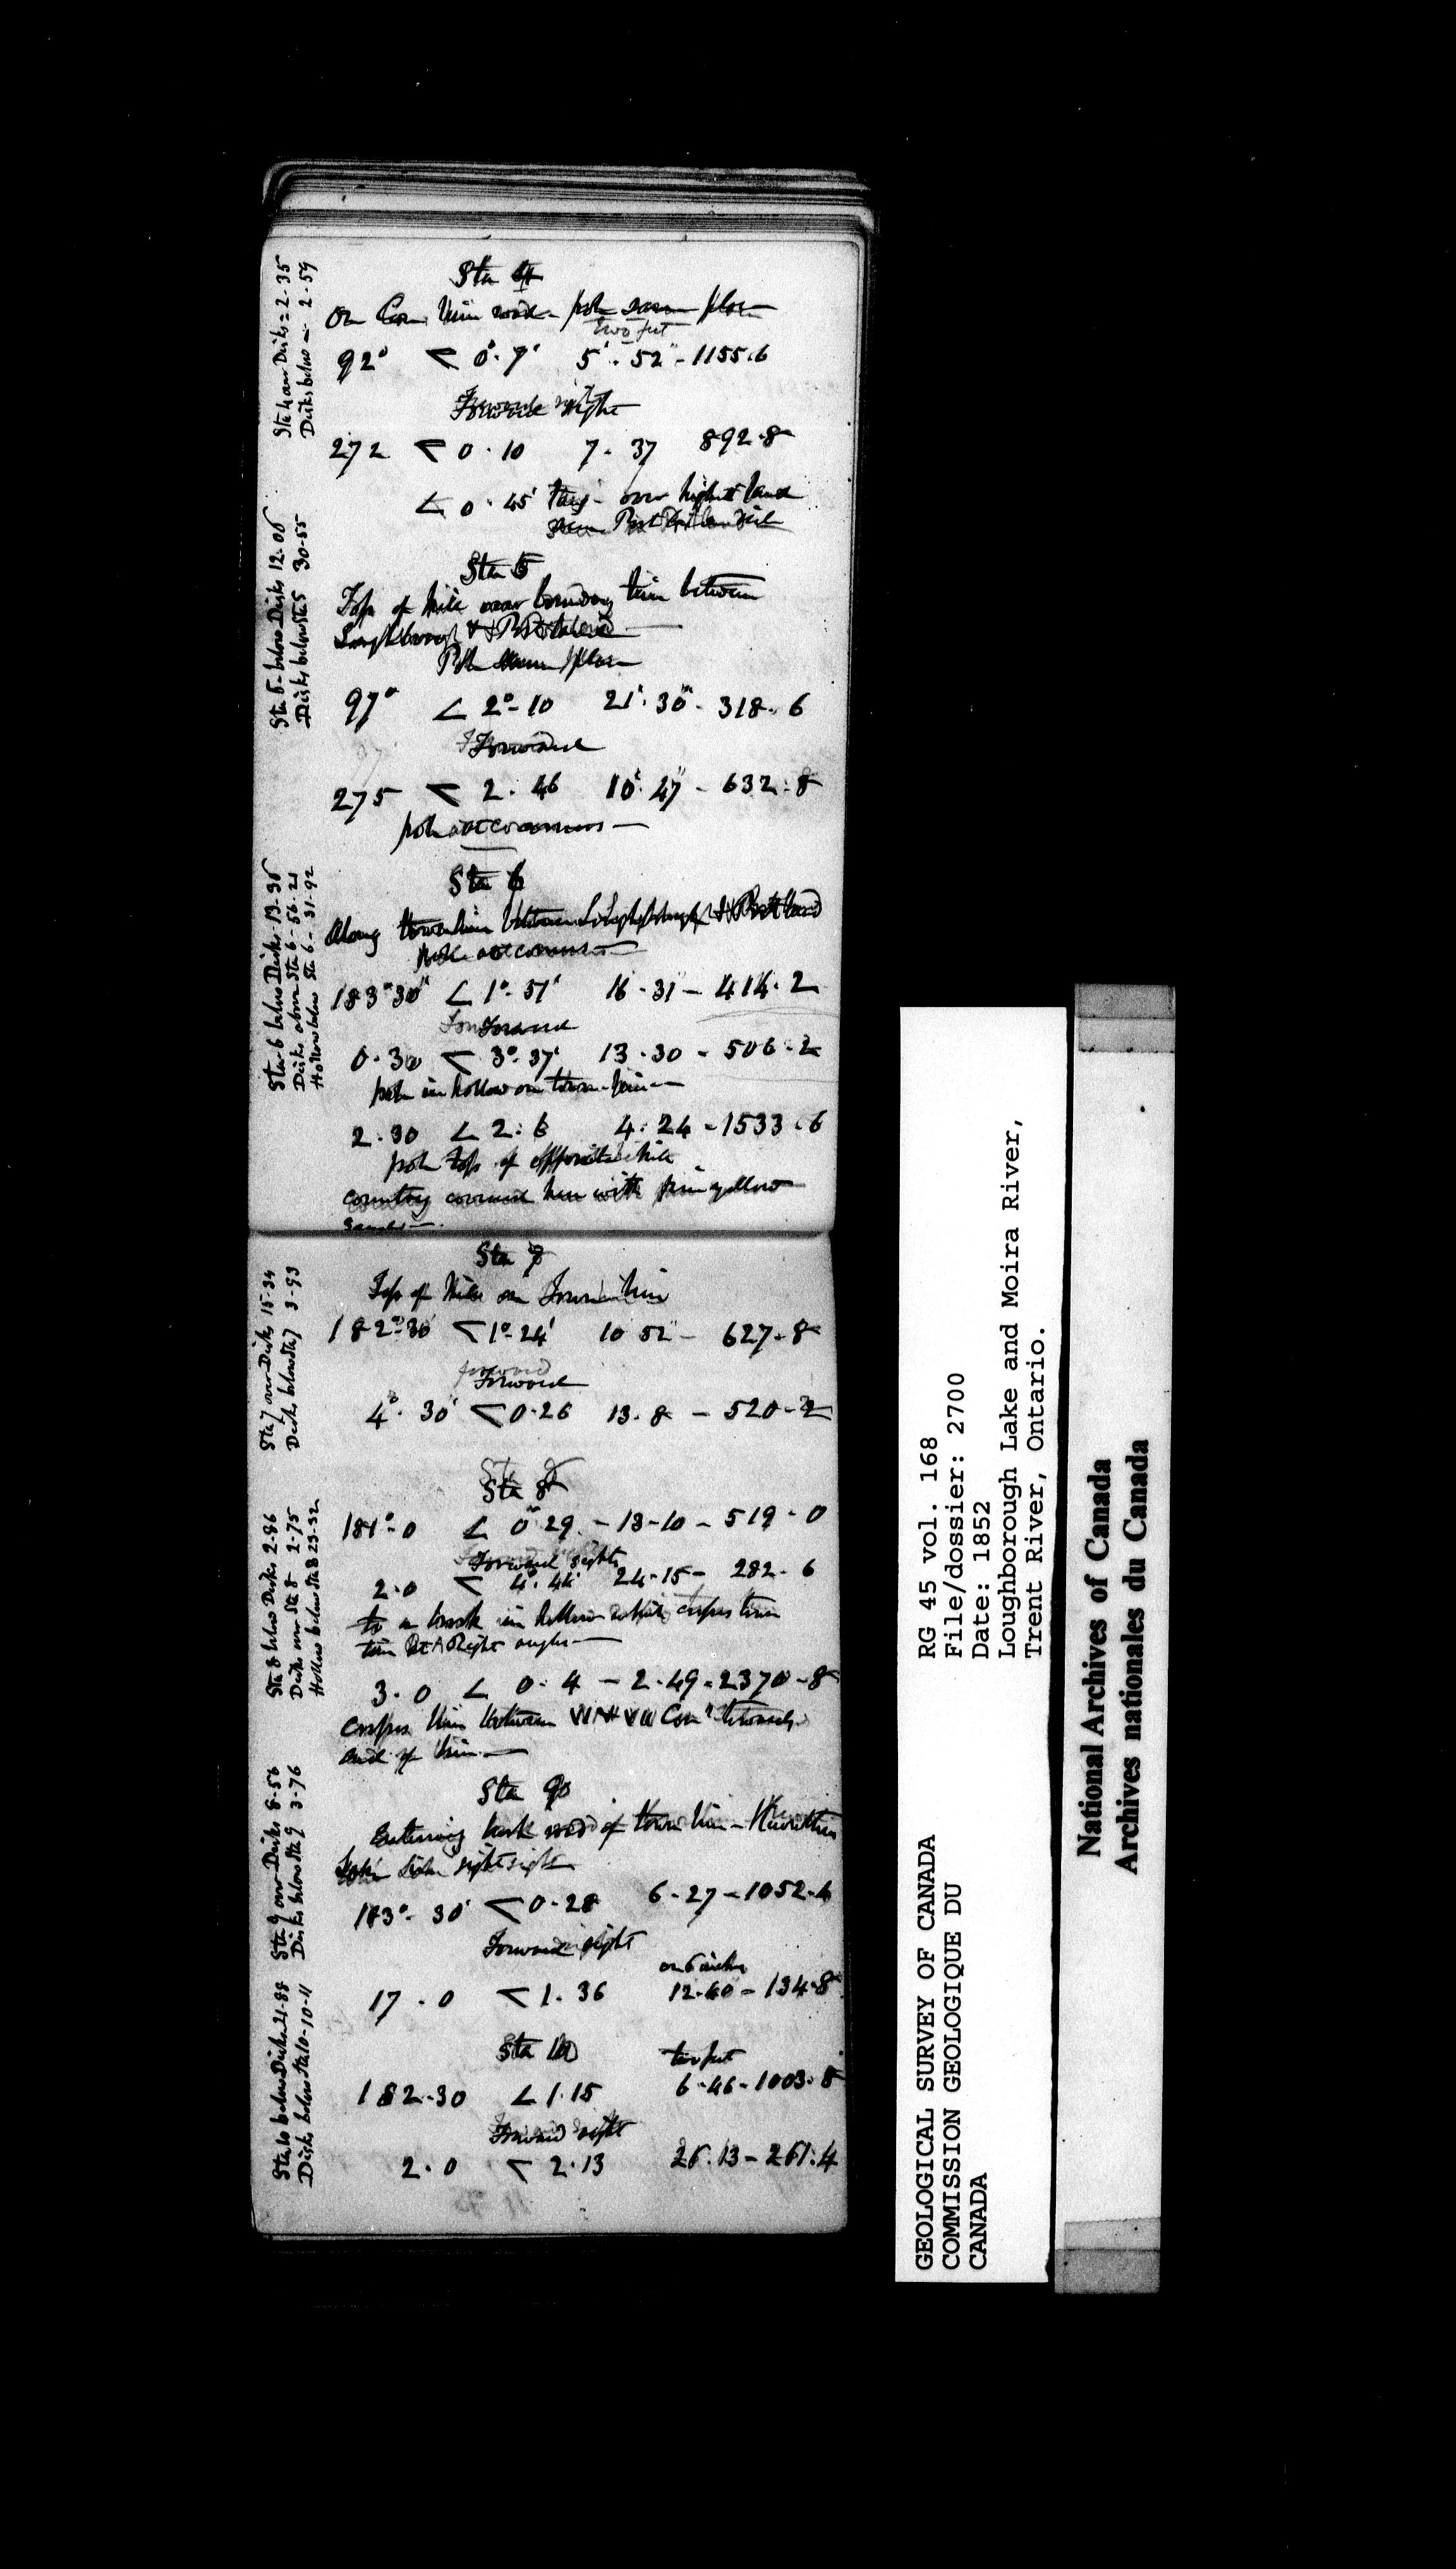 Sta 4
On Con. line road - pole same place
two feet
92° < 0°. 7' 5'. 52" - 1155.6
Forward sight
272 < 0 . 10 7. 37 892.8
< 0 . 45' over highest land
Sta 5
Top of hill near boundary line between
Loughborough & Portland
Pole same place
97° < 2°- 10 21'. 30" - 318. 6
Forward
275 < 2. 46 10'. 47" - 632.8
pole at corners
Sta 6
Along town line between Loughborough & Portland
pole at corners
183°30' < 1°- 51' 16 - 31 - 414. 2
Forward
0.30 < 3°. 37' 13 . 30 - 506.2
pole in hollow on town line
2.30 < 2: 6 4: 24 - 1533.6
pole top of opposite hill
country covered here with fine yellow
sand
Sta 7
Top of hill on Town line
182°-30' < 1°- 24' 10 52" - 627.8
Forward
4°. 30' < 0.26 13. 8 - 520-2
Sta 8
181°- 0 < 0° 29 - 13-10 - 519 - 0
Forward sights
2.0 < 4°. 44' 24-15 - 282. 6
to a brook in hollow which crosses town
line at Right angles
3. 0 < 0. 4 - 2.49 - 2370-8
crosses line between VI & VII Con.
end of line
Sta 9
Entering back road of town line
183°- 30' < 0.28 6 - 27 - 1052.4
Forward sight
17 . 0 < 1. 36 12.40 - 134.8
Sta 10
two feet
182.30 < 1.15 6-46 - 1003.8
Forward sight
2.0 < 2.13 26.13 - 261.4
Sta 4 over Disks = 2.35
Disks below - 2.59
Sta 5 - below Disks 12.06
Disks below Sta 5 30-55
Sta 6 below Disks 13.36
Disks above Sta 6 - 56.21
Hollow below Sta 6 - 31.92
Sta 7 over Disks 15.34
Disks below Sta 7 3-93
Sta 8 below Disks 2.96
Disks over Sta 8 - 2.75
Hollow below Sta 8 23-32
Sta 9 over Disks 8-56
Disks below Sta 9 3-76
Sta 10 below Disks 21.88
Disks below Sta 10 - 10-11
GEOLOGICAL SURVEY OF CANADA
COMMISSION GEOLOGIQUE DU
CANADA
RG 45 vol. 168
File/dossier: 2700
Date: 1852
Loughborough Lake and Moira River,
Trent River, Ontario.
National Archives of Canada
Archives nationales du Canada